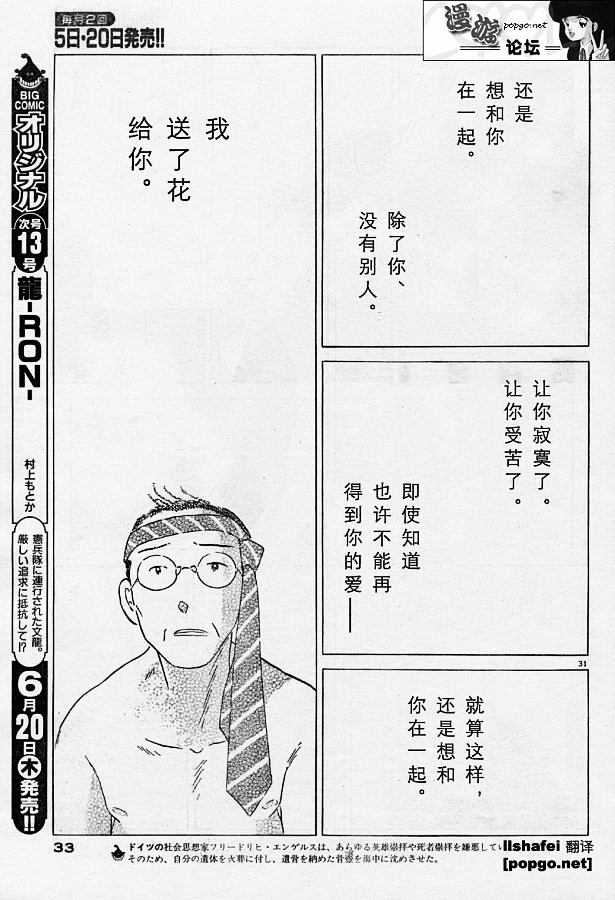 毎月2回
5日・20日発売!!
漫游
popgo.net
论坛
还是
想和你
在一起。
除了你、
没有别人。
让你寂寞了。
让你受苦了。
即使知道
也许不能再
得到你的爱——
31
就算这样，
还是想和
你在一起。
我
送了花
给你。
BIG
COMIC
オリジナル
次号
13
号
龍-RON-
村上もとか
憲兵隊に連行された文龍。
厳しい追求に抵抗して!?
6月20日(木)発売!!
33
ドイツの社会思想家フリードリヒ・エンゲルスは、あらゆる英雄崇拝や死者崇拝を嫌悪してい
そのため、自分の遺体を火葬に付し、遺骨を納めた骨壺を海中に沈めさせた。
llshafei 翻译
[popgo.net]